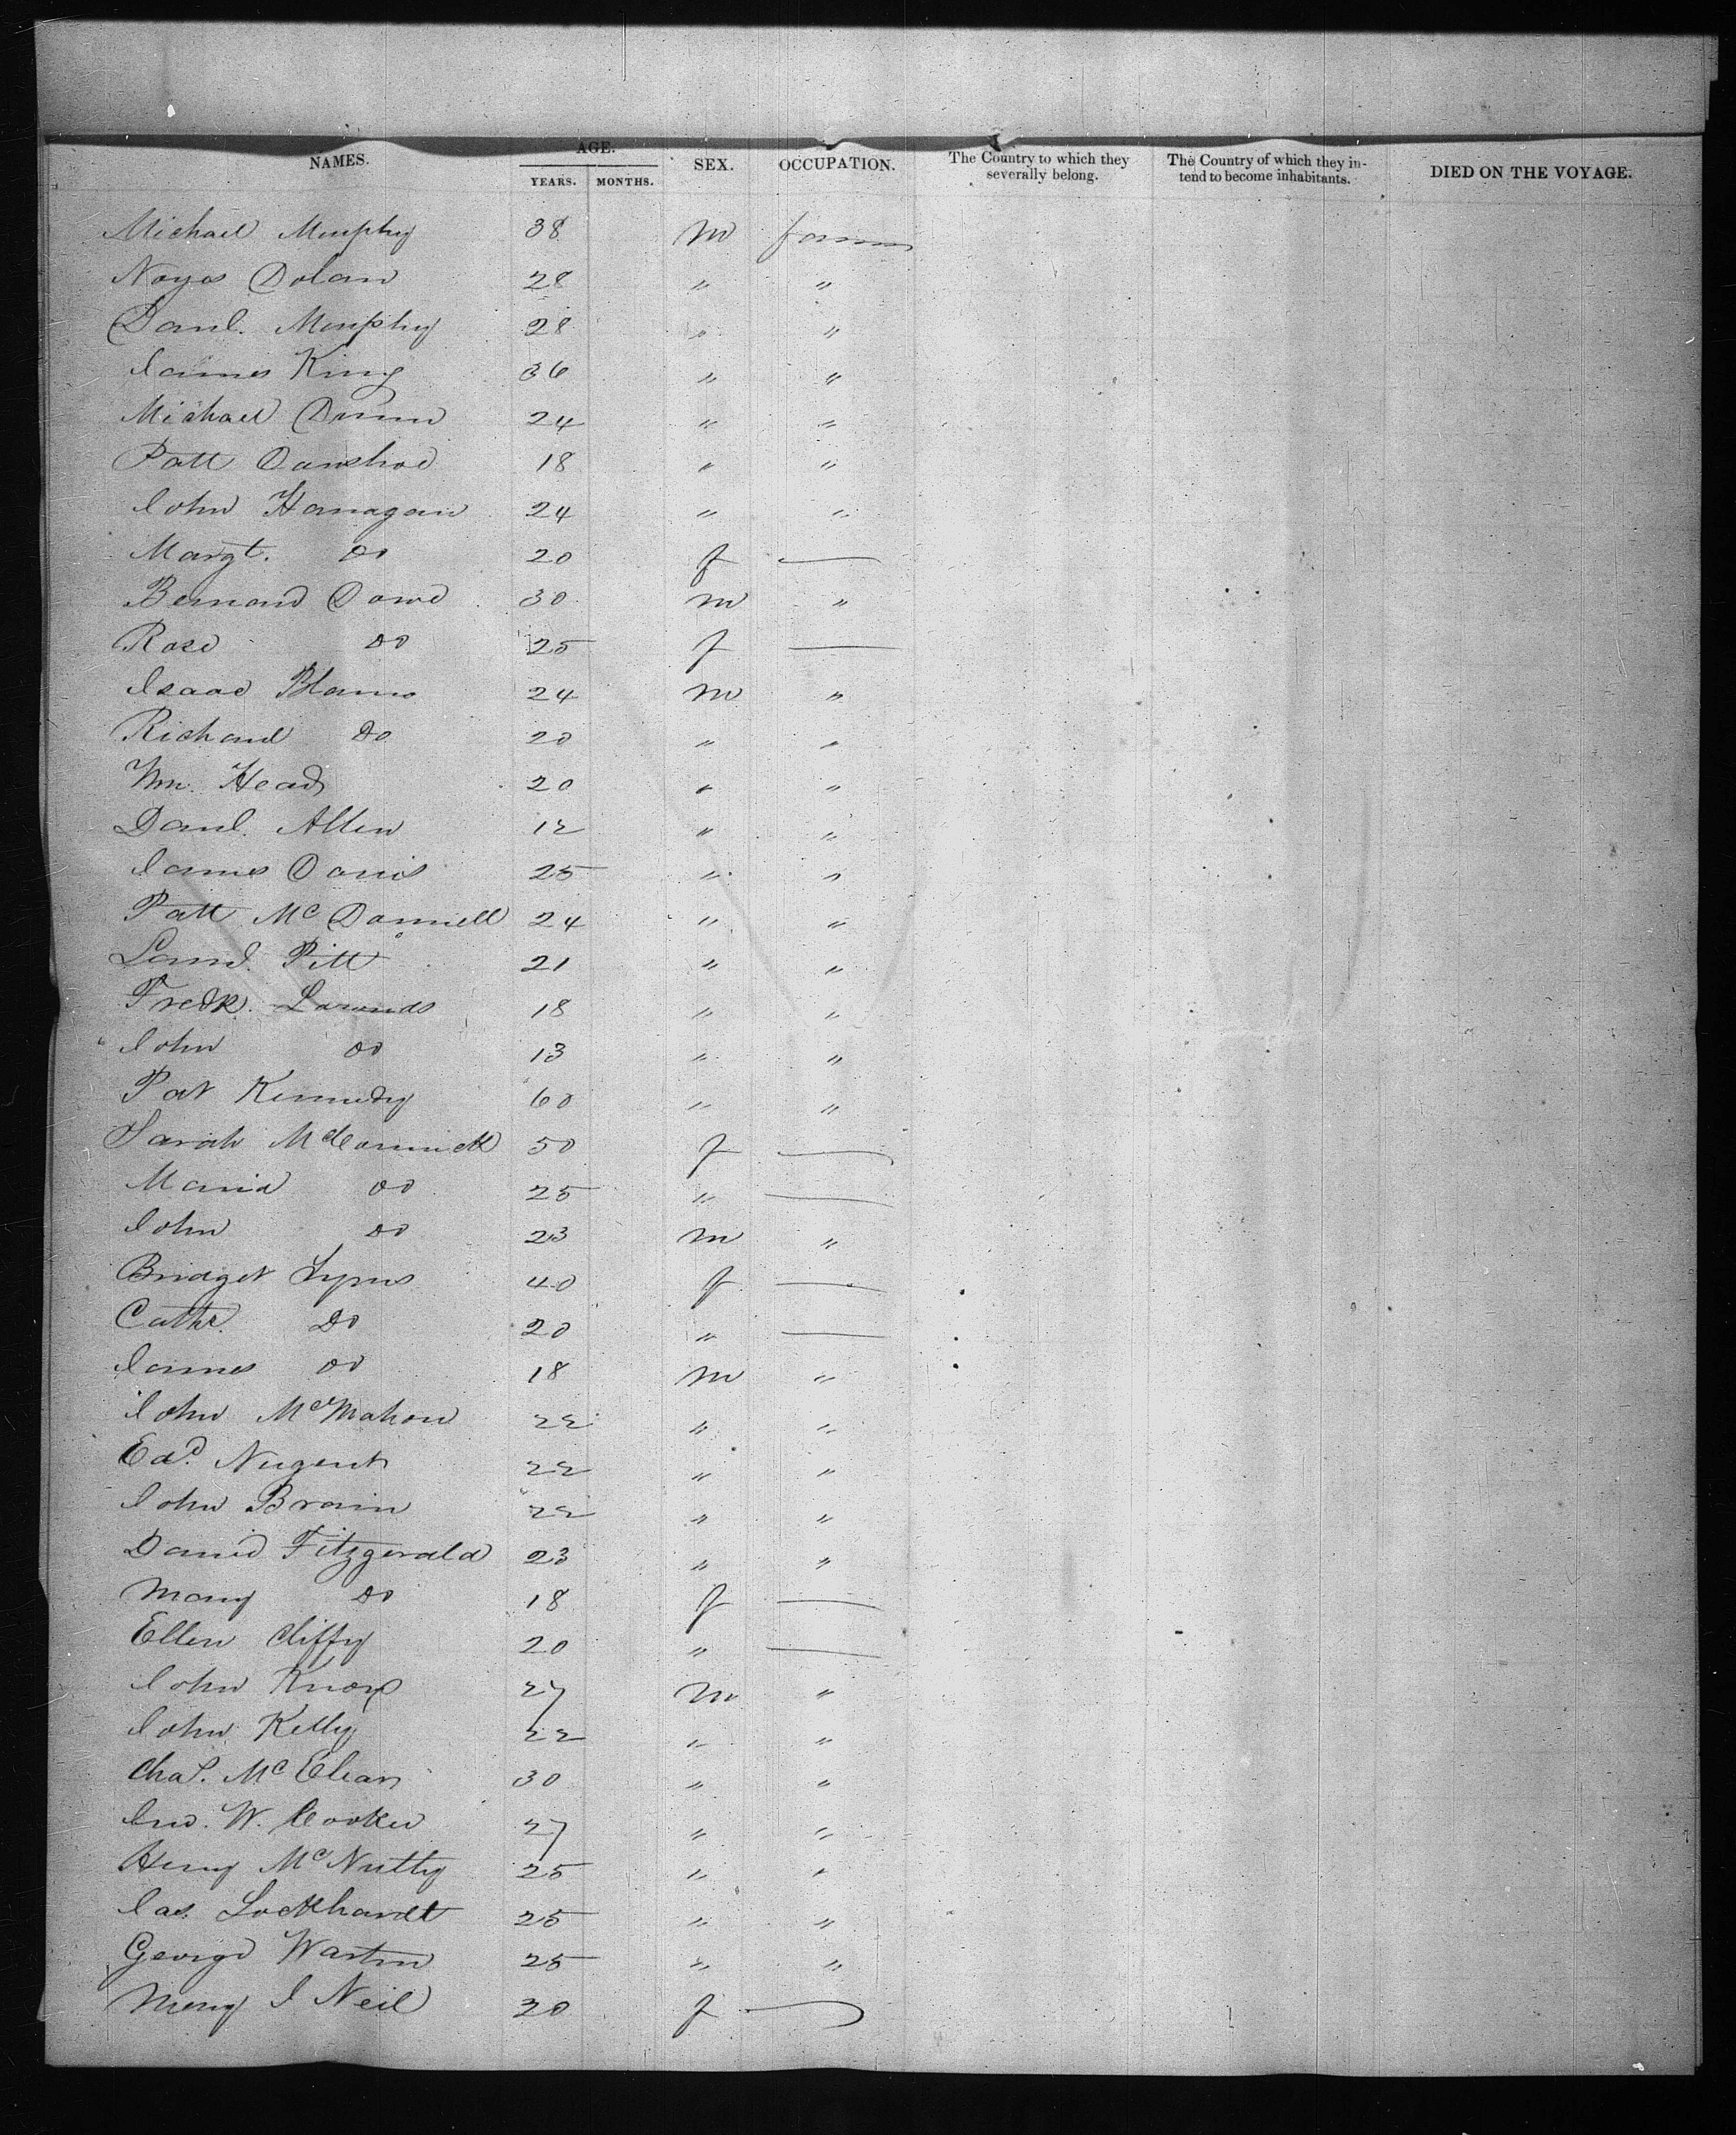 NAMES. AGE. SEX. OCCUPATION. The Country to which they severally belong. The Country of which they intend to become inhabitants. DIED ON THE VOYAGE.
YEARS. MONTHS.
Michael Murphy 38 m farmer
Dolan 28 " "
Danl. Murphy 28 " "
James King 36 " "
Michael Dunn 24 " "
Patt 18 " "
John Hanagan 24 " "
Margt. Do 20 f —
Bernard Dowd 30 m "
Rose Do 25 f —
Isaac 24 m "
Richard Do 20 " "
Wm. Head 20 " "
Danl. Allen 12 " "
James Davis 25 " "
Patt McDonnell 24 " "
Pitt 21 " "
Fredk. 18 " "
John Do 13 " "
Pat Kennedy 60 " "
Sarah McCormick 50 f —
Maria Do 25 " —
John Do 23 m "
Bridget Lyons 40 f —
Cathe. Do 20 " —
James Do 18 m "
John McMahon 22 " "
Edd. Nugent 22 " "
John Brain 22 " "
David Fitzgerald 23 " "
Mary Do 18 f —
Ellen Cliffy 20 " —
John Knox 27 m "
John Kelly 22 " "
Chas. McClean 30 " "
Jno. W. Cooker 27 " "
Henry McNutty 25 " "
Jas. Lockhardt 25 " "
George Warton 25 " "
Mary J Neil 20 f —